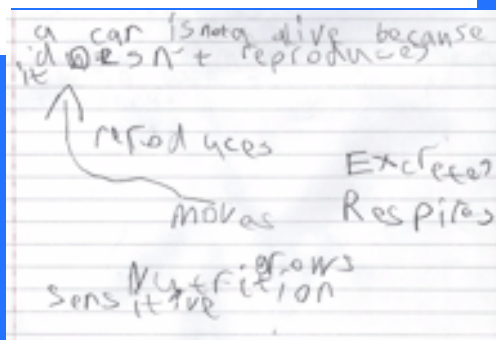 a car is not a alive because
it doesn't reproduces
reproduces
Excretes
moves
Respires
grows
Nutrition
sensitive